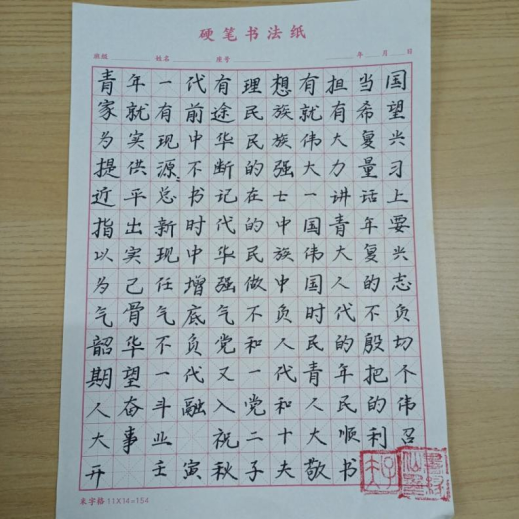 硬笔书法纸
班级 姓名 座号 年 月 日
青年一代有理想有担当国
家就有前途民族就有希望
为实现中华民族伟大复兴
提供源不断的强大力量习
近平总书记在七一讲话上
指出新时代的中国青年要
以实现中华民族伟大复兴
为己任增强做中国人的志
气骨气底气不负时代不负
韶华不负党和人民的殷切
期望一代又一代青年把不
人奋斗融入党和人民的伟
大事业祝二十大顺利召
开壬寅秋子夫敬书
米字格 11X14=154